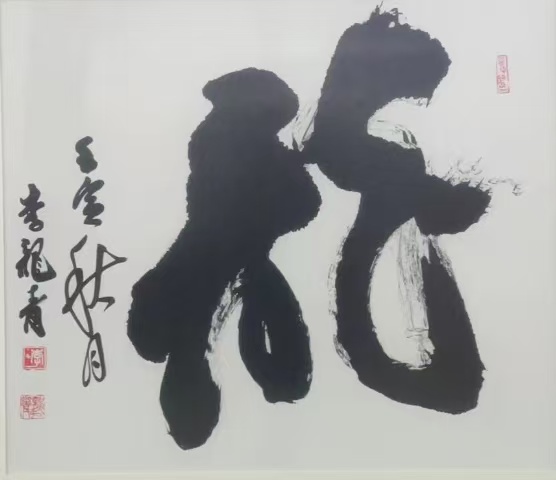 龍
壬寅秋月
李龍青